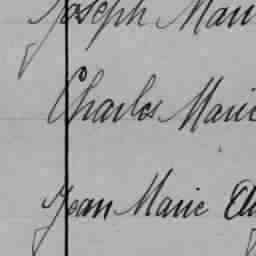 Joseph Mari
Charles Marie
Jean Marie